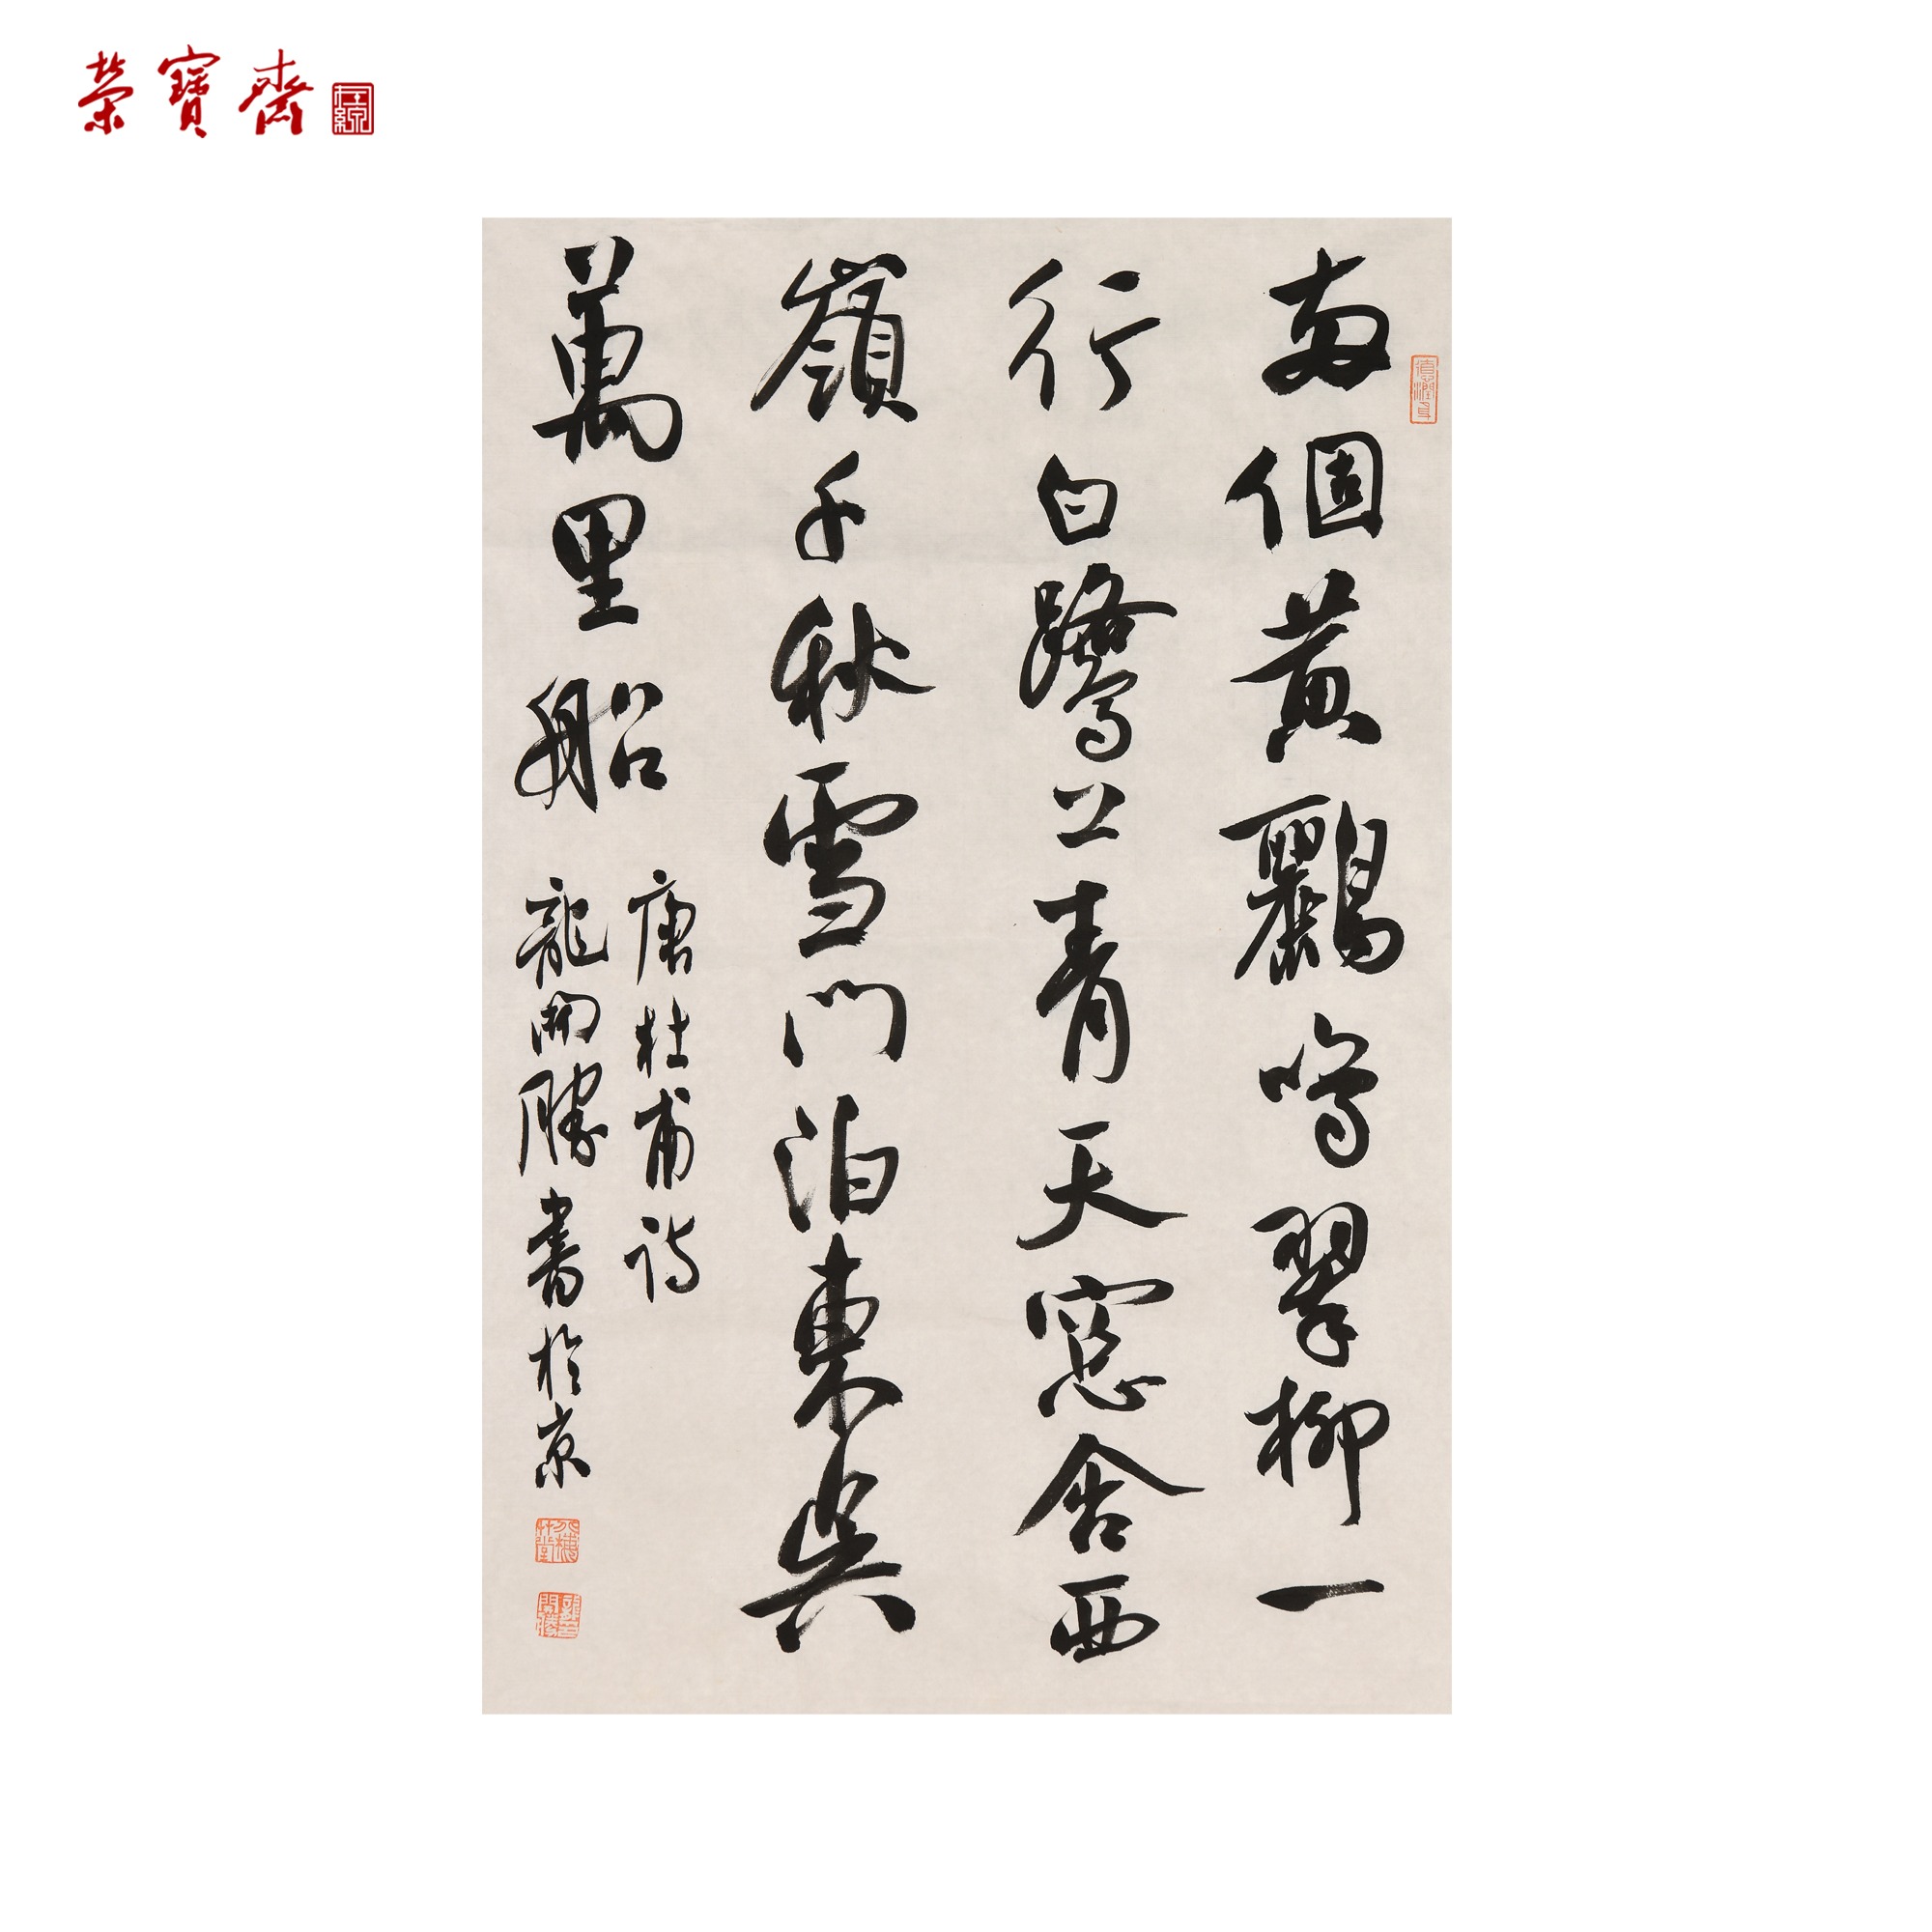 榮寶齋
在線
德潤身
兩個黃鸝鳴翠柳一
行白鷺上青天窓含西
嶺千秋雪門泊東吳
萬里船
唐杜甫詩
龍開勝書於京